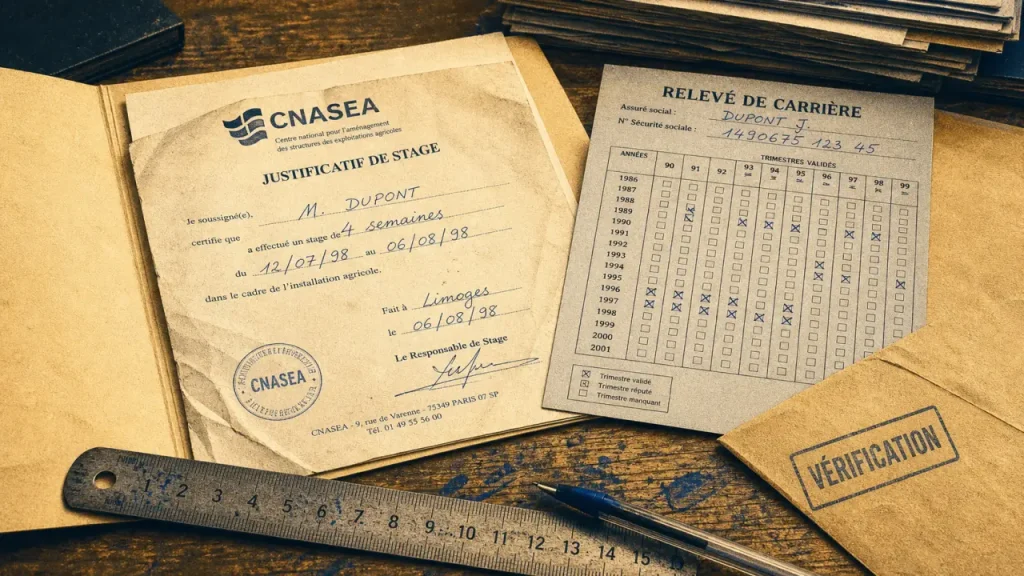 CNASEA
Centre national pour l'aménagement
des structures des exploitations agricoles
JUSTIFICATIF DE STAGE
Je soussigné(e), M. DUPONT
certifie que a effectué un stage de 4 semaines
du 12/07/98 au 06/08/98
dans le cadre de l'installation agricole.
Fait à Limoges
le 06/08/98
Le Responsable de Stage
CNASEA
CNASEA - 9, rue de Varenne - 75349 PARIS 07 SP
Tél. 01 49 55 56 00
RELEVÉ DE CARRIÈRE
Assuré social : DUPONT J.
N° Sécurité sociale : 1490675 123 45
ANNÉES TRIMESTRES VALIDÉS
90 91 92 93 94 95 96 97 98 99
1986
1987
1988
1989
1990
1991
1992
1993
1994
1995
1996
1997
1998
1999
2000
2001
Trimestre validé
Trimestre réputé
Trimestre manquant
VÉRIFICATION
1 2 3 4 5 6 7 8 9 10 11 12 13 14 15